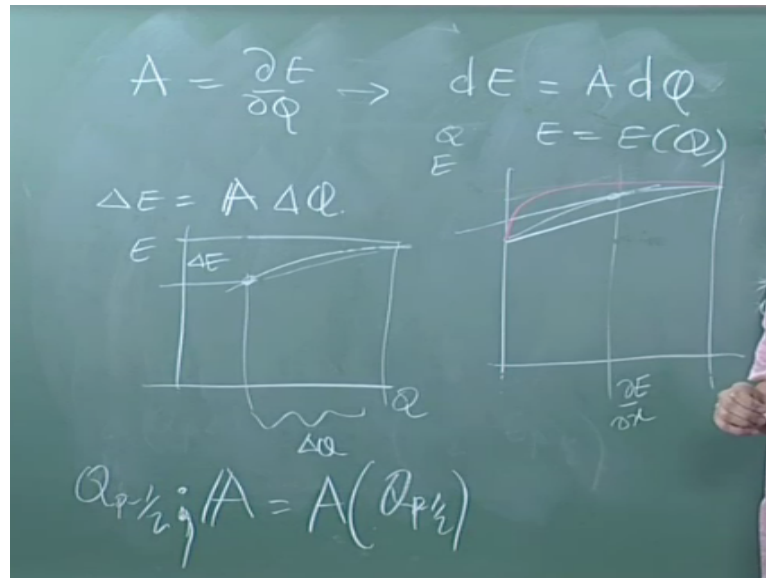 A = ∂E/∂Q → dE = A dQ
Q E = E(Q)
E
ΔE = A ΔQ.
E ΔE
Q
ΔQ
∂E/∂x
Q_{p-1/2} ; A = A(Q_{p-1/2})